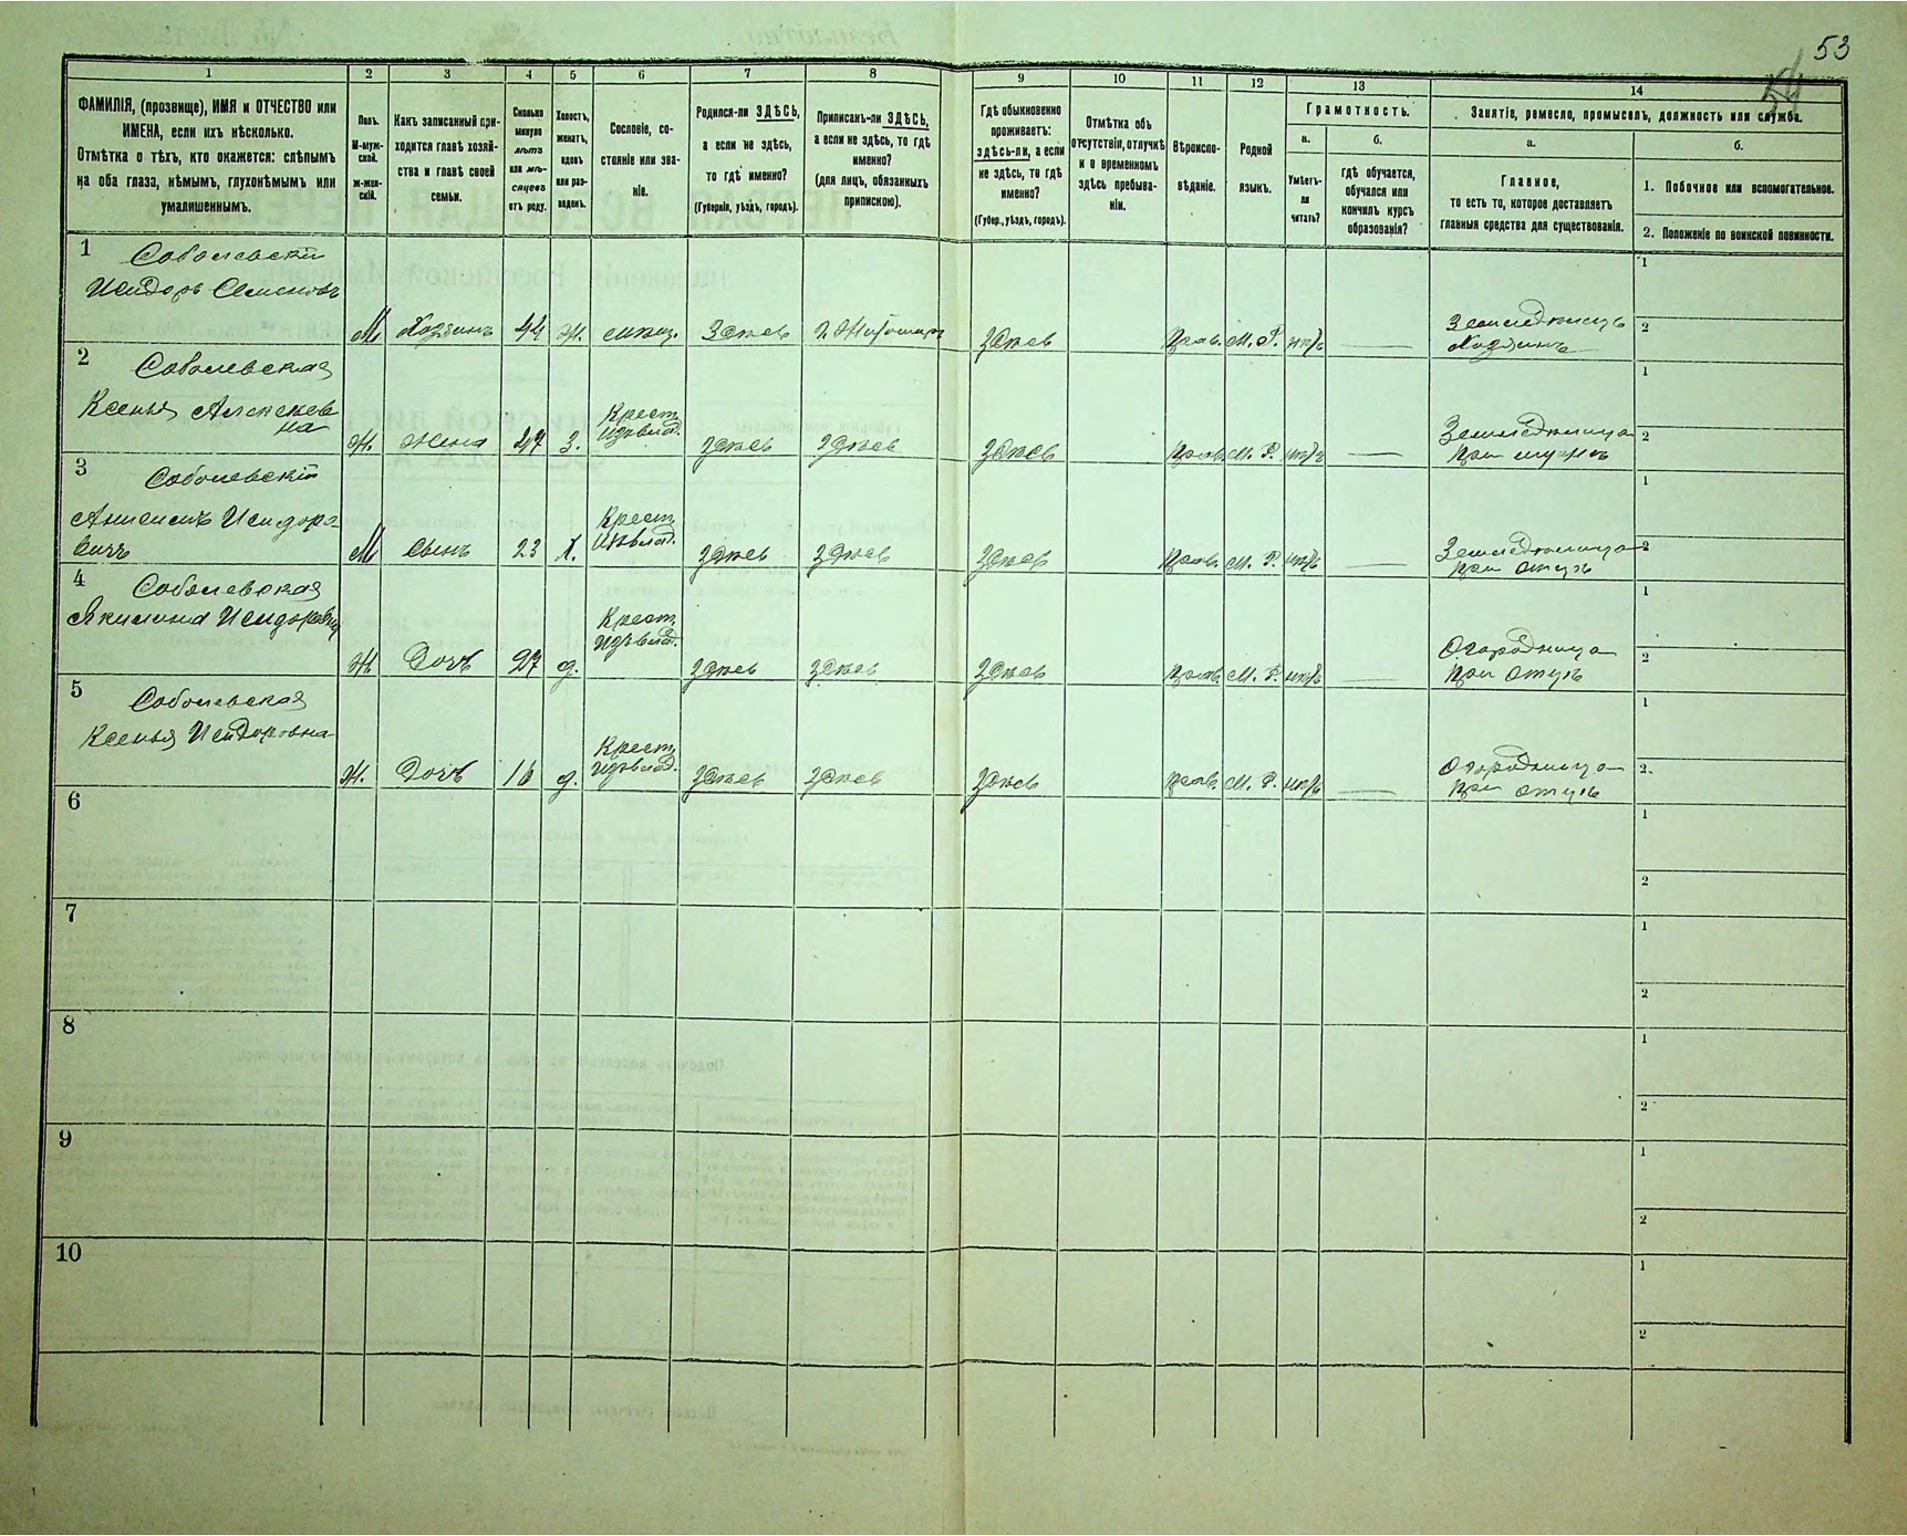 53
54
1
2
3
4
5
6
7
8
9
10
11
12
13
14
ФАМИЛІЯ, (прозвище), ИМЯ и ОТЧЕСТВО или
ИМЕНА, если ихъ нѣсколько.
Отмѣтка о тѣхъ, кто окажется: слѣпымъ
на оба глаза, нѣмымъ, глухонѣмымъ или
умалишеннымъ.
Полъ.
М-муж-
ской.
ж-жен-
скій.
Какъ записанный при-
ходится главѣ хозяй-
ства и главѣ своей
семьи.
Сколько
минуло
лѣтъ
или мѣ-
сяцевъ
отъ роду.
Холостъ,
женатъ,
вдовъ
или раз-
веденъ.
Сословіе, со-
стояніе или зва-
ніе.
Родился-ли ЗДѢСЬ,
а если не здѣсь,
то гдѣ именно?
(Губернія, уѣздъ, городъ).
Приписанъ-ли ЗДѢСЬ,
а если не здѣсь, то гдѣ
именно?
(для лицъ, обязанныхъ
припиской).
Гдѣ обыкновенно
проживаетъ:
здѣсь-ли, а если
не здѣсь, то гдѣ
именно?
(Губер., уѣздъ, городъ).
Отмѣтка объ
отсутствіи, отлучкѣ
и о временномъ
здѣсь пребыва-
ніи.
Вѣроиспо-
вѣданіе.
Родной
языкъ.
Грамотность.
а.
Умѣетъ-
ли
читать?
б.
гдѣ обучается,
обучался или
кончилъ курсъ
образованія?
Занятіе, ремесло, промыселъ, должность или служба.
а.
Главное,
то есть то, которое доставляетъ
главныя средства для существованія.
б.
1. Побочное или вспомогательное.
2. Положеніе по воинской повинности.
1 Соболевскій
Исидоръ Семеновъ
М Хозяинъ 44 Ж. Здѣсь г. Житомиръ Здѣсь Прав. М. Р. нѣтъ —
Земледѣлецъ
Хозяинъ
1
2
2 Соболевская
Ксенья Алексѣев
на
Ж. Жена 47 З. Крест. здѣсь здѣсь здѣсь Прав. М. Р. нѣтъ —
Земледѣлица
при мужѣ
1
2
3 Соболевскій
Исидоро-
вичъ
М Сынъ 23 Х. Крест. здѣсь здѣсь здѣсь Прав. М. Р. нѣтъ —
при отцѣ
1
2
4 Соболевская
Акилина Исидоровна
Ж. Дочь 27 д. Крест. здѣсь здѣсь здѣсь Прав. М. Р. нѣтъ —
Огородница
при отцѣ
1
2
5 Соболевская
Ксенья Исидоровна
Ж. Дочь 16 д. Крест. здѣсь здѣсь здѣсь Прав. М. Р. нѣтъ —
Огородница
при отцѣ
1
2
6
1
2
7
1
2
8
1
2
9
1
2
10
1
2